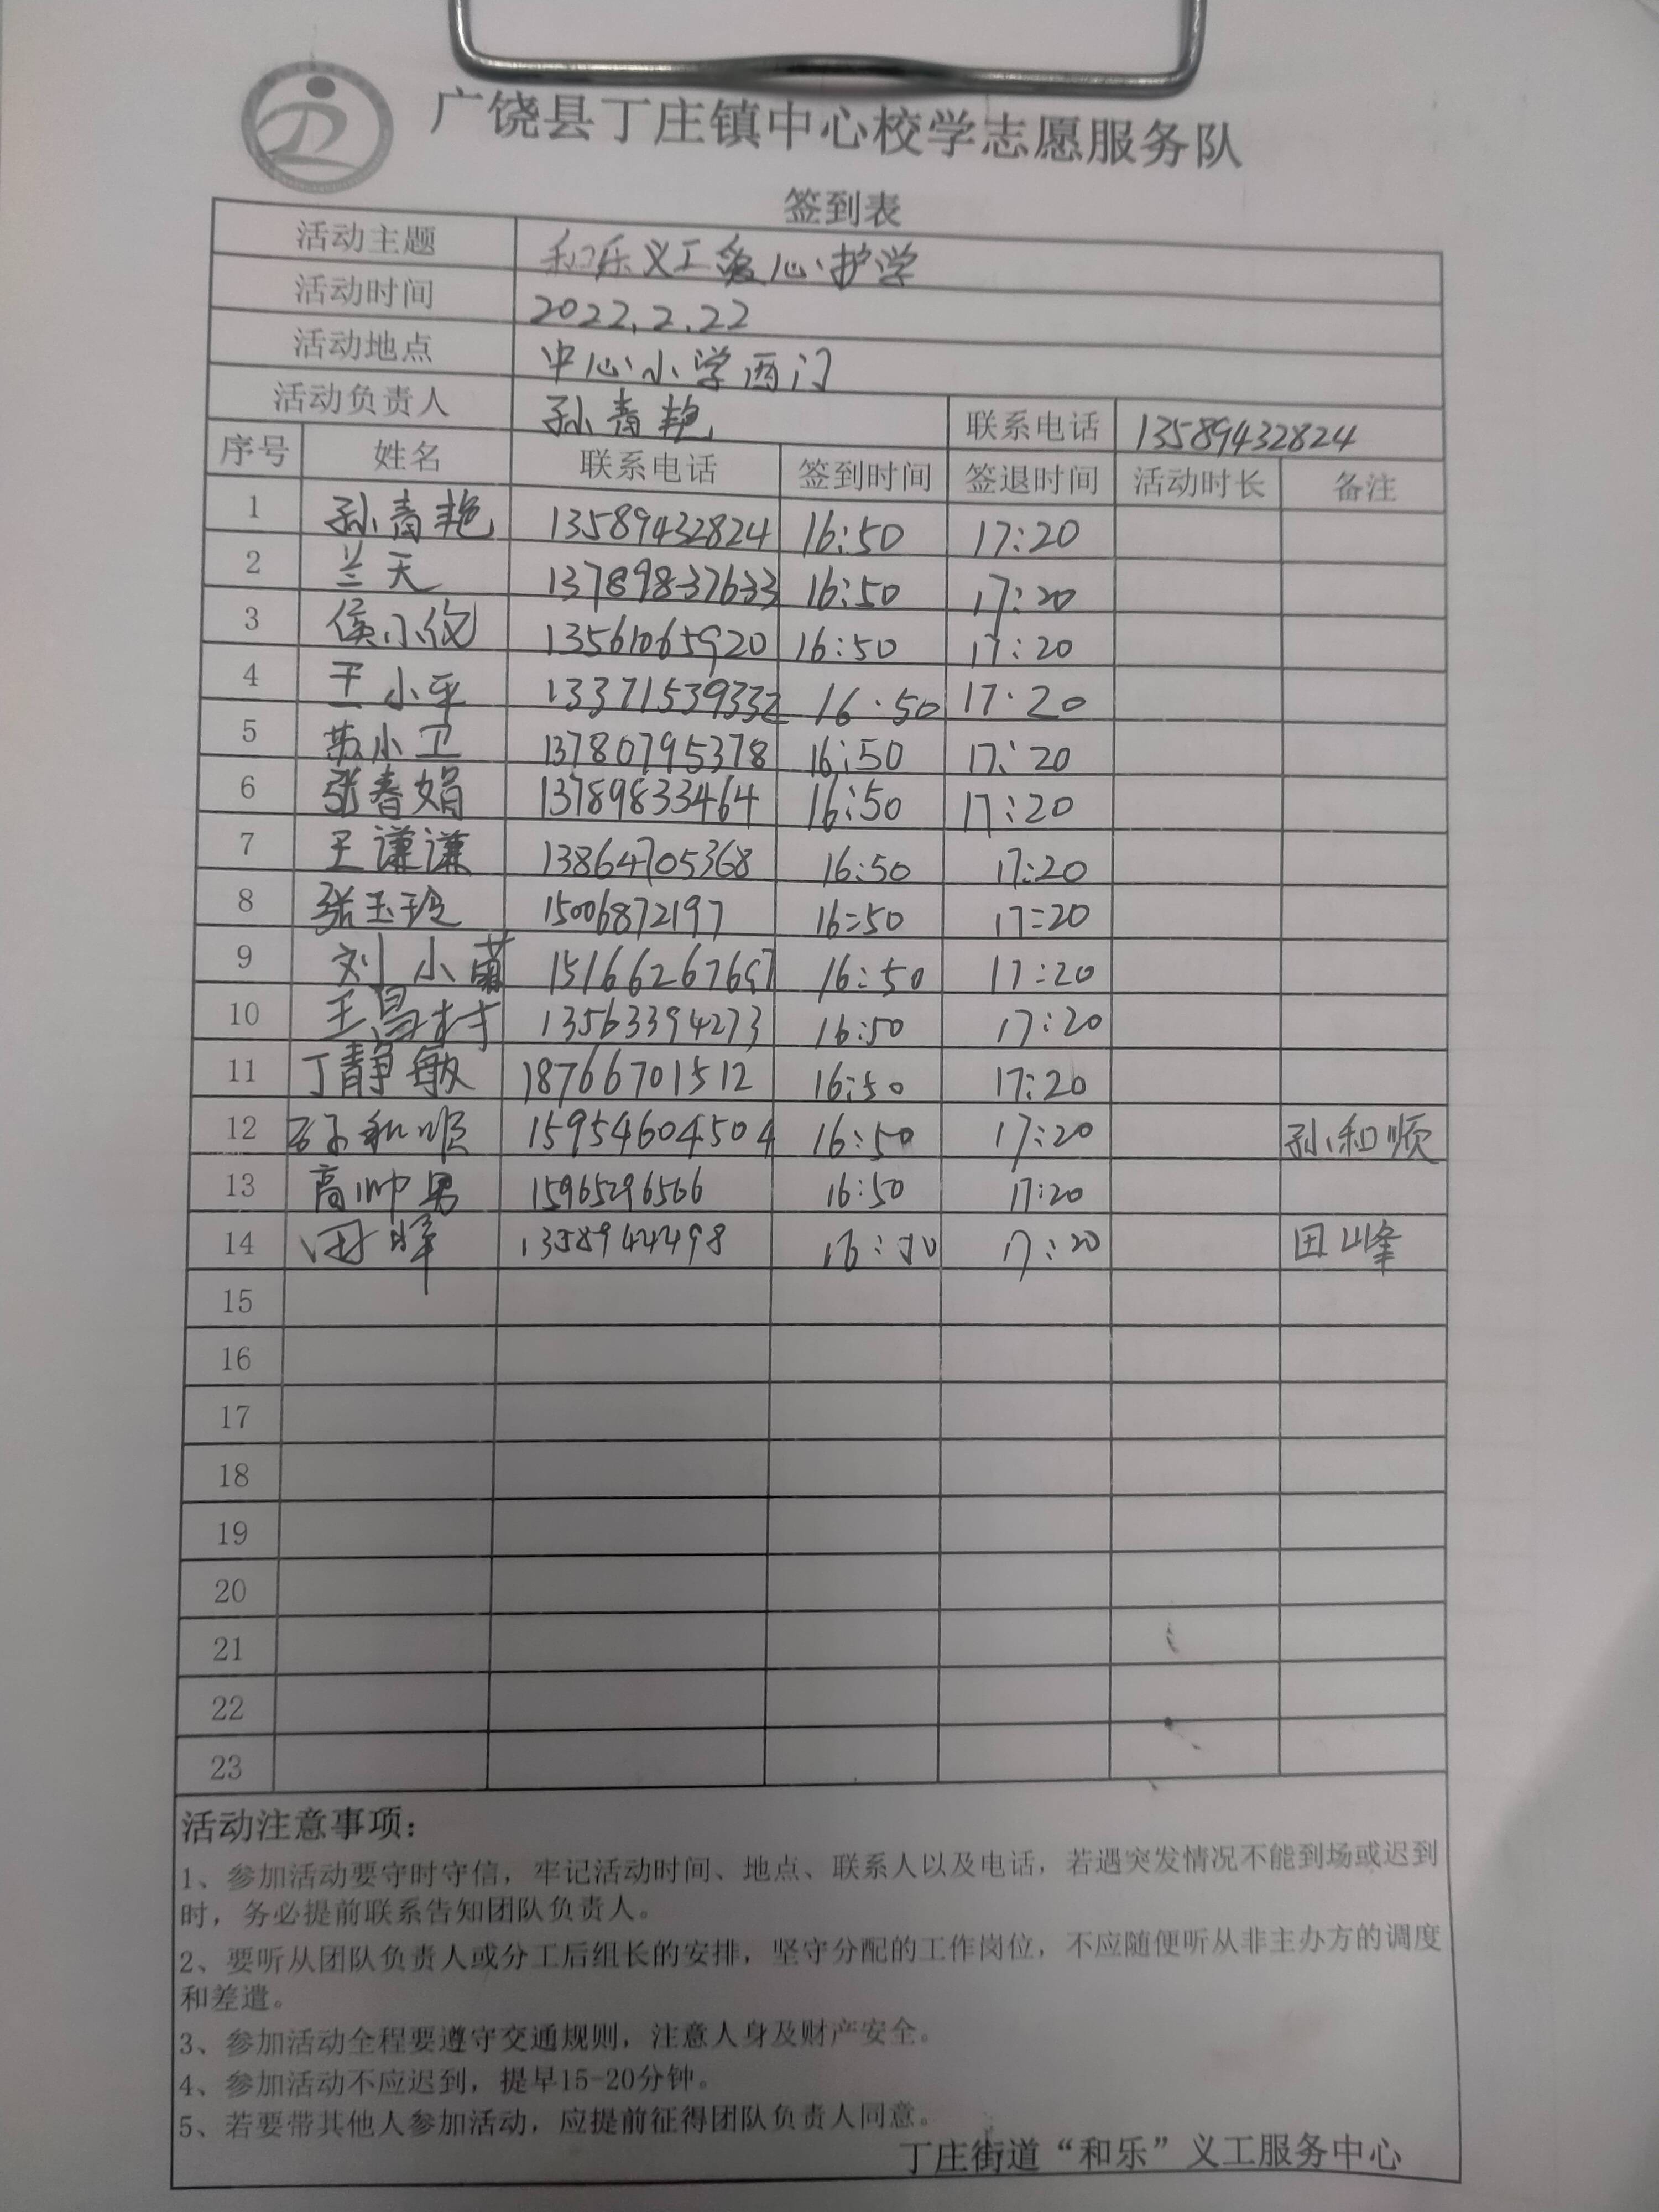 广饶县丁庄镇中心校学志愿服务队
签到表
活动主题 和乐义工爱心护学
活动时间 2022.2.22
活动地点 中心小学西门
活动负责人 孙青艳 联系电话 13589432824
序号 姓名 联系电话 签到时间 签退时间 活动时长 备注
1 孙青艳 13589432824 16:50 17:20
2 兰天 13789837633 16:50 17:20
3 侯小仪 13561065920 16:50 17:20
4 王小平 13371539332 16:50 17:20
5 苏小卫 13780795378 16:50 17:20
6 张春娟 13789833464 16:50 17:20
7 王谦谦 13864705368 16:50 17:20
8 张玉玲 15006872197 16:50 17:20
9 刘小菌 15166267697 16:50 17:20
10 王昌村 13563394273 16:50 17:20
11 丁静敏 18766701512 16:50 17:20
12 孙和顺 15954604504 16:50 17:20 孙和顺
13 高帅男 15965296566 16:50 17:20
14 田峰 13589444498 16:50 17:20 田峰
15
16
17
18
19
20
21
22
23
活动注意事项:
1、参加活动要守时守信，牢记活动时间、地点、联系人以及电话，若遇突发情况不能到场或迟到
时，务必提前联系告知团队负责人。
2、要听从团队负责人或分工后组长的安排，坚守分配的工作岗位，不应随便听从非主办方的调度
和差遣。
3、参加活动全程要遵守交通规则，注意人身及财产安全。
4、参加活动不应迟到，提早15-20分钟。
5、若要带其他人参加活动，应提前征得团队负责人同意。
丁庄街道“和乐”义工服务中心